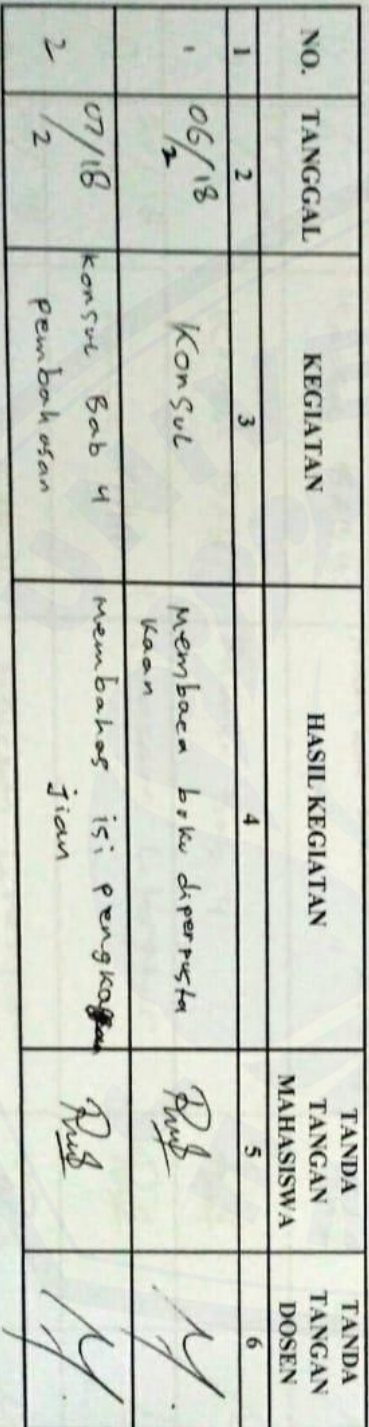 NO. TANGGAL KEGIATAN HASIL KEGIATAN TANDA TANGAN MAHASISWA TANDA TANGAN DOSEN
1 2 3 4 5 6
1 06/18 Konsul Membaca buku diperpusta
2 kaan
2 07/18 Konsul Bab 4 Membahas isi pengka
2 pembahasan jian